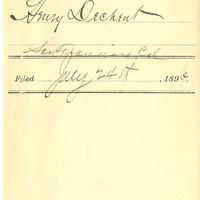 Henry Dechent
San Francisco Cal
Filed July 24th, 1896.